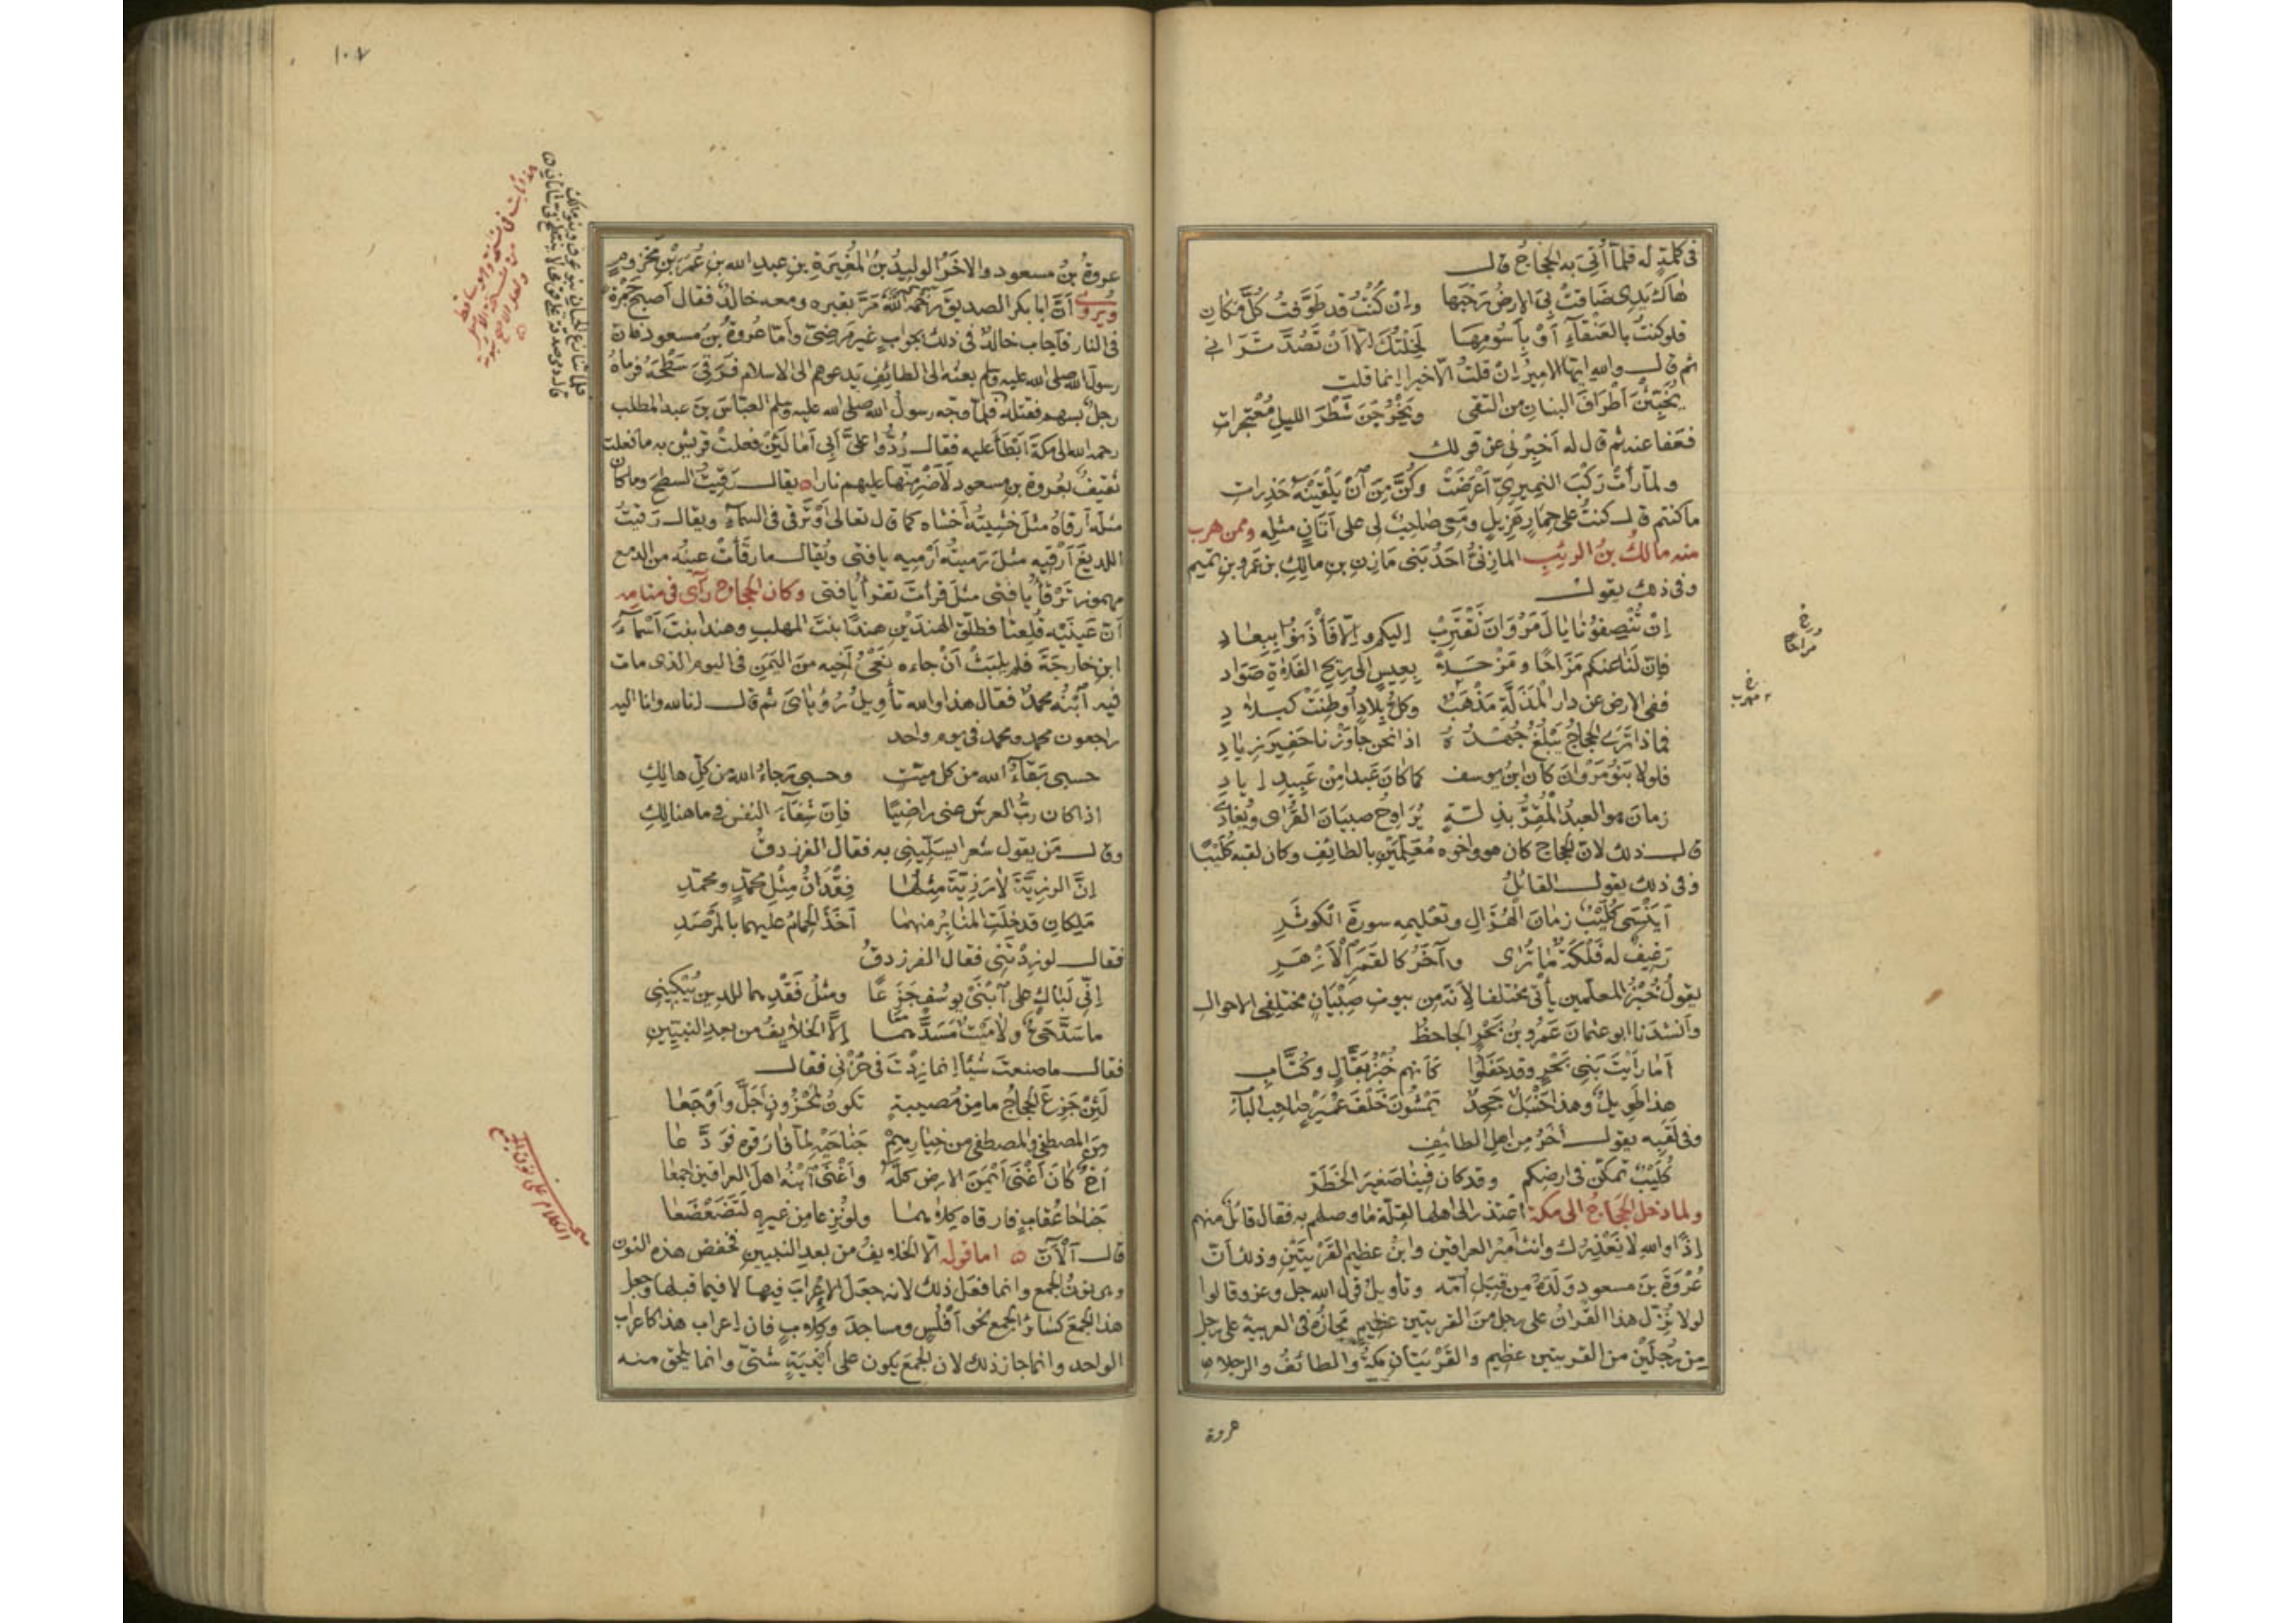 فى كلمةٍ له فلمّا أُتِىَ به الحجاجُ قال
هَاكَ يَدِى ضَاقَتْ بِىَ الارضُ رَحْبَهَا وإنْ كُنْتُ قد طَوَّفتُ كُلَّ مَكانِ
فلو كنتُ بالعَنْقآءِ أوْ بِأَسُومِهَا لَخِلْتُكَ إلّا أنْ تَصُدَّ تَرَانِى
ثم قال والله ايها الاميرُ إنْ قلتُ الّا خيرا إنما قلت
يُخَبِّئْنَ أطْرَافَ البنانِ من التقى ويَخْرُجْنَ شَطْرَ الليلِ مُعْتَجِراتِ
فعَفا عنه ثم قال له أخبِرْنى عن قولك
ولمّا رأتْ رَكْبَ النميرىّ أعْرَضَتْ وكُنَّ مِنَ آنْ يَلْقَيْنَهُ حَذِراتِ
ما كنتم قال كنتُ على حمارٍ هَزِيلٍ ومَعِى صاحبٌ لى على أتَانٍ مثلِه وممن هرب
منه مالكُ بنُ الريْبِ المازنىُّ احَدُ بَنى مَازِنِ بنِ مالِكِ بنِ عَمْرو بنِ تميم
وفى ذلك يقول
إنْ تُنْصِفُونا يَالَ مَرْوَانَ نَقْتَرِبْ إليكم وإلّا فَأْذَنُوا بِبِعَادِ
فإنّ لَنَا عنكم مَزَاحًا ومَزْحَلةً بِعِيسٍ إلى رِيحِ الفَلاةِ صَوَادِ
ففى الارضِ عن دارِ الْمَذَلَّةِ مَذْهَبٌ وكلُّ بِلادٍ أُوطِنَتْ كبِلادِ
فماذا ترَى الحجاجَ يَبْلُغُ جُهْدُهُ اذا نحن جاوَزْنا حَفِيرَ زِيَادِ
فلولا بَنُو مَرْوانَ كان ابنُ يوسف كما كانَ عَبدا مِنْ عَبِيدِ إيادِ
زمانَ هو العبدُ الْمُقِرُّ بذِلّةٍ يُرَاوِحُ صبيَانَ القُرَى ويُغادِى
قال ذلك لانّ الحجاج كان هو واخوه مُعَلِّمَيْنِ بالطائِفِ وكان لقبه كُلَيْبًا
وفى ذلك يقول القائلُ
أيَنْسَى كُلَيْبٌ زمانَ الْهُزَالِ وتَعْليمِه سورةَ الكوثَرِ
رَغيفٌ له فَلْكَةٌ مّا تُرَى وآخَرُ كالقمَرِ الْأزْهَرِ
يقولُ خُبْزُ المعلّمين يأتى مختلفا لأنّه من بيوتِ صِبْيَانٍ مختلفى الاحوال
وأنشدَنا ابو عثمانَ عَمْرُو بنُ بَحْرٍ الجاحظُ
أمَا رَأيْتَ بَنِى بَحْرٍ وقد حَفَلُوا كأنهم خُبْزُ بَقّالٍ وكُتّابِ
هذا طويلٌ وهذا حَنْبَلٌ جَحِدٌ يَمْشُونَ خَلْفَ عُمَيْرٍ صاحبِ البابِ
وفى لَقَبِه يقول آخَرُ من اهلِ الطائِفِ
كُلَيْبٌ تمكّنَ فى ارضِكم وقد كان فينا صَغِيرَ الخَطَرْ
ولما دخل الحَجّاجُ الى مكة اعتذر الى اهلها لقِلّةِ ما وصلهم به فقال قائلٌ منهم
إذًا واللهِ لا نَعْذِرُك وانت أميرُ العراقينِ وابنُ عظيمِ القَرْيَتَيْنِ وذلك أنّ
عُرْوَةَ بنَ مسعودٍ وَلَدَهُ من قِبَلِ أُمّه وتأويلُ قولِ الله جل وعز وقالوا
لولا نُزِّلَ هذا القُرآنُ على رجلٍ من القريتينِ عظيمٍ مَجَازُهُ فى العربية على رجلٍ
مِن رَجُلَيْنِ من القريتين عظيمٍ والقَرْيَتانِ مكّةُ والطائفُ والرجلان
عروة
وخ
مراحًا
خ
مهرب
١٠٧
عروةُ بنُ مسعودٍ والآخَرُ الوليدُ بنُ المُغِيرَةِ بنِ عبدِ الله بنِ عُمَرَ بْنِ مَخْزومٍ
ويُرْوَى أنّ ابا بكر الصديقَ رَحمه اللهُ مَرّ بقبرِه ومعه خالدٌ فقال أصبحَ جَمْرَةً
فى النار فأجاب خالدٌ فى ذلك بجوابٍ غيرِ مَرضِىٍّ وأمّا عُروةُ بنُ مسعودٍ فان
رسولَ الله صلى الله عليه وسلم بعثه الى الطائِفِ يَدعوهم الى الاسلام فرَقِىَ سَطْحَهُ فرماهُ
رجلٌ بسهمٍ فقتله فلمّا وجّه رسولُ الله صلى الله عليه وسلم العبّاسَ بنَ عبد المطلب
رحمه الله الى مكةَ أبْطَأ عليه فقال رُدُّوا علىَّ أبِى أمَا لَئِنْ فعلتْ قريش به ما فعلت
ثقيفٌ بعروةَ بنِ مسعود لَأُضْرِمَنَّها عليهم نارا يقال رَقِيتُ السطحَ وما كان
مثلَه أرْقاهُ مثلَ خَشِيتُه أخشاه كما قال تعالى أوْ تَرْقى فى السمآء ويقال رَقَيتُ
اللديغَ أَرْقِيهِ مثلَ رَميتُه أرْمِيه يا فتى ويُقال ما رَقَأَتْ عينُه من الدمع
مهموز تَرْقَأُ يا فتى مثلَ قرأتَ تقرأُ يا فتى وكان الحجاجُ رَأى فى منامِه
أنّ عَينَيْه قُلِعتا فطلّق الهندَيْنِ هندًا بنتَ المهلبِ وهندا بنتَ أسْمآءَ
ابنِ خارِجَةَ فلم يلبَثْ أنْ جاءه نَعْىُ أخيه منَ اليَمَنِ فى اليوم الذى مات
فيه آبْنُه محمدٌ فقال هذا والله تأويلُ رُؤيَاىَ ثم قال إنا لله وانا اليه
راجعون محمدٌ ومحمدٌ فى يومٍ واحد
حسبى بَقَآءُ الله من كل ميّتٍ وحسبى رَجاءُ الله من كلِّ هالِكِ
اذا كان ربُّ العرشِ عنى راضِيًا فإنّ شِفَآءَ النفسِ فى ما هنالِكِ
وقال مَن يقول شعرا يسَلّينِى به فقال الفرزدقُ
إنَّ الرزِيَّةَ لا رَزِيّةَ مِثْلُها فِقْدَانُ مِثْلِ مُحمّدٍ ومحمّدِ
مَلِكانِ قد خَلَتِ المنَابِرُ منهما أخَذَ الحِمامُ عليهما بالمَرْصَدِ
فقال لو زِدْتَنِى فقال الفرزدقُ
إنّى لَبَاكٍ على آبْنَىْ يوسُفٍ جَزَعًا ومثلُ فَقْدِهما للدينِ يُبْكِينِى
ما سَدَّ حَىٌّ ولا مَيْتٌ مَسَدَّهما إلّا الخلآئِفُ من بعدِ النبيّينِ
فقال ما صنعتَ شيْأً إنما زِدْتَ فى حُزْنى فقال
لَئِنْ جَزِعَ الحجاجُ ما مِن مُصيبةٍ تكونُ لمحْزُونٍ أجَلَّ وأَوْجَعَا
مِن المصطفَى والمصطفَى من خِيَارِهِمْ جَنَاحَيْه لمّا فَارَقوه فوَدَّعا
أخٌ كانَ أغْنَى أيْمَنَ الارضِ كلَّهُ وأغْنَى آبْنُه اهلَ العراقينِ اجمعَا
جَنَاحَا عُقابٍ فارقاه كِلاهُما ولو نُزِعا من غيرِه لَتَضَعْضَعَا
قال آلْآنَ اما قوله الّا الخلايفُ من بعدِ النبيينِ فخفض هذه النون
وهى نونُ الجمع وانما فعَل ذلك لانه جعَلَ الإعرَابَ فيها لا فيما قبلها وجعل
هذا الجمعَ كسائرِ الجمع نحو أفْلُسٍ ومساجدَ وكِلابٍ فان إعراب هذا كاعراب
الواحد وانما جاز ذلك لان الجمعَ يكون على أبْنيَةٍ شَتّى وانما يلحق منه